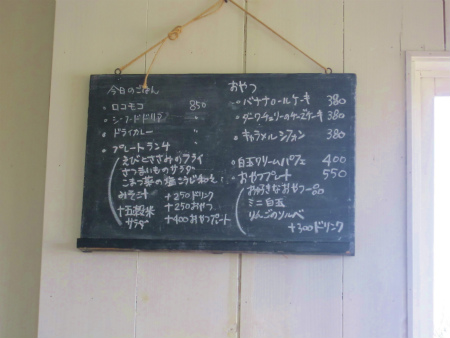 今日のごはん
・ロコモコ 850
・シーフードドリア 〃
・ドライカレー 〃
・プレートランチ
えびとささみのフライ
さつまいものサラダ
こまつ菜の塩こうじ和え
みそ汁
十五穀米
サラダ
+250ドリンク
+250おやつ
+400おやつプレート
おやつ
・バナナロールケーキ 380
・ダークチェリーのチーズケーキ 380
・キャラメルシフォン 380
・白玉クリームパフェ 400
・おやつプレート 550
お好きなおやつ一品
ミニ白玉
りんごのソルベ
+300ドリンク